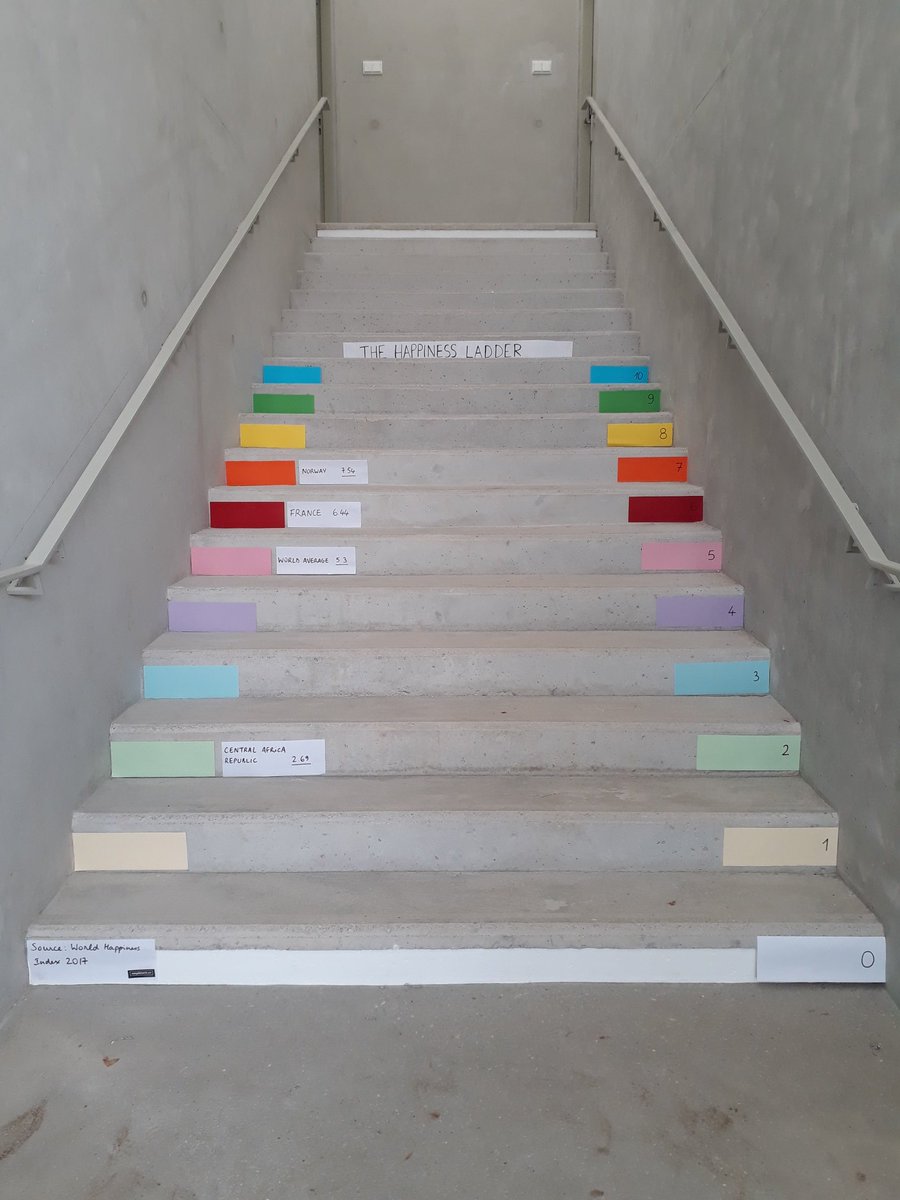 THE HAPPINESS LADDER
10
9
8
NORWAY 7.54
7
FRANCE 6.44
WORLD AVERAGE 5.3
5
4
3
CENTRAL AFRICA
REPUBLIC 2.69
2
1
Source: World Happiness
Index 2017
0